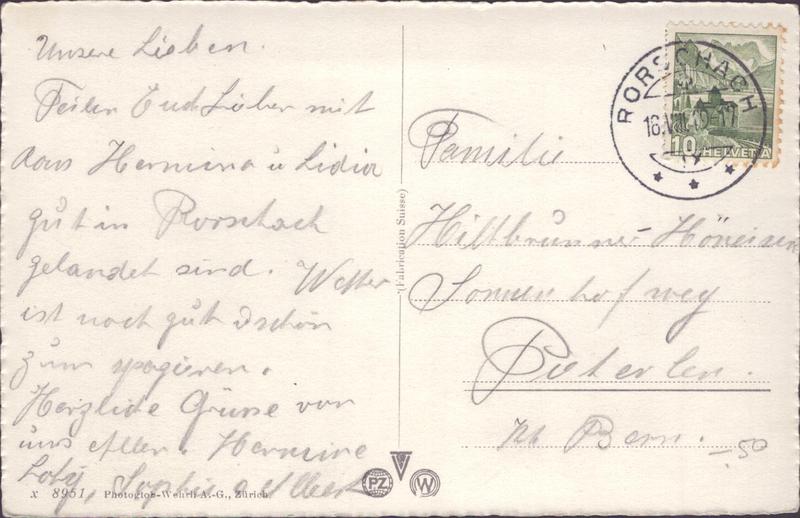 Unsere Lieben.
Teilen Euch Lieber mit
dass Hermina u Lidia
gut in Rorschach
gelandet sind. Wetter
ist noch gut u schön
zum spazieren.
Herzliche Grüsse von
uns Allen. Hermine
Sophie Albert
x 8951. Photoglob-Wehrli A.-G., Zürich.
(Fabrication Suisse)
PZ
W
RORSCHACH
10 HELVETIA
Familie
Hiltbrunner-Höneisen
Sonnenhofweg
Pieterlen.
Kt. Bern.
-50